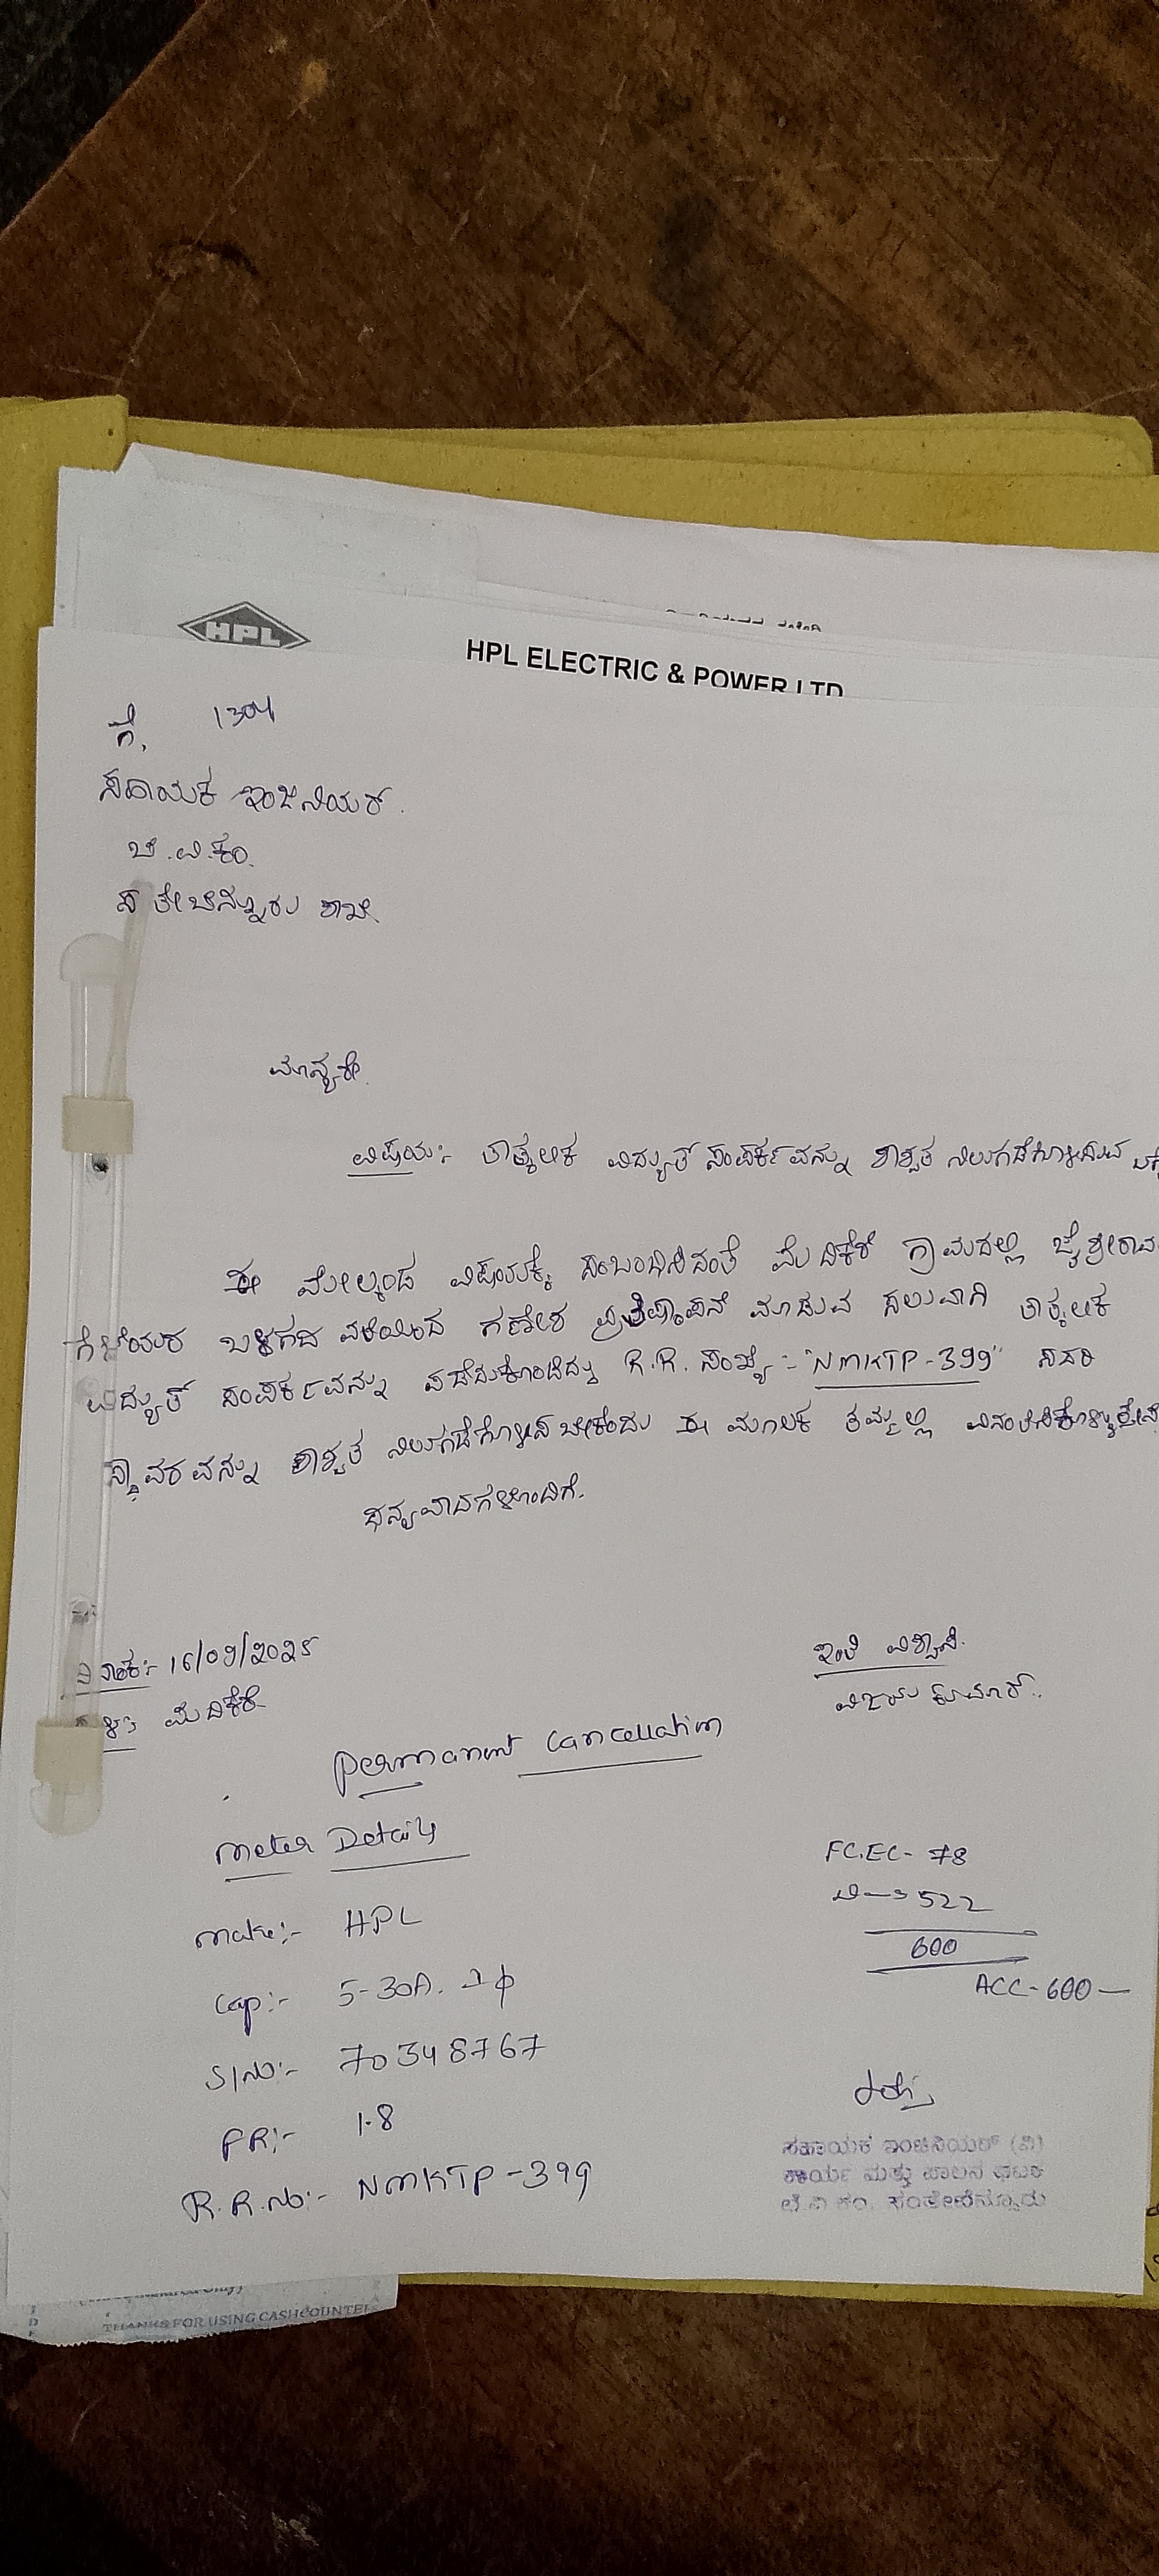 HPL
HPL ELECTRIC & POWER LTD
ಗೆ, 1304
ಸಹಾಯಕ ಇಂಜಿನಿಯರ್.
ಬೆ.ವಿ.ಕಂ.
ಸಂತೇಬೆನ್ನೂರು ಶಾಖೆ.
ಮಾನ್ಯರೇ.
ವಿಷಯ:- ತಾತ್ಕಲಿಕ ವಿದ್ಯುತ್ ಸಂಪರ್ಕವನ್ನು ಶಾಶ್ವತ ನಿಲುಗಡೆಗೊಳಿಸುವ
ಈ ಮೇಲ್ಕಂಡ ವಿಷಯಕ್ಕೆ ಸಂಬಂಧಿಸಿದಂತೆ ಮೆದಿಕೆರೆ ಗ್ರಾಮದಲ್ಲಿ ಜೈ ಶ್ರೀರಾಮ
ಗೆಳೆಯರ ಬಳಗದ ವತಿಯಿಂದ ಗಣೇಶ ಪ್ರತಿಷ್ಠಾಪನೆ ಮಾಡುವ ಸಲುವಾಗಿ ತಾತ್ಕಲಿಕ
ವಿದ್ಯುತ್ ಸಂಪರ್ಕವನ್ನು ಪಡೆದುಕೊಂಡಿದ್ದು R.R. ಸಂಖ್ಯೆ:- "NMKTP-399" ಸದರಿ
ಸ್ಥಾವರವನ್ನು ಶಾಶ್ವತ ನಿಲುಗಡೆಗೊಳಿಸಬೇಕೆಂದು ಈ ಮೂಲಕ ತಮ್ಮಲ್ಲಿ ವಿನಂತಿಸಿಕೊಳ್ಳುತ್ತೇನೆ
ಧನ್ಯವಾದಗಳೊಂದಿಗೆ.
ದಿನಾಂಕ:- 16/09/2025
ಇಂತಿ ವಿಶ್ವಾಸಿ.
ಸ್ಥಳ: ಮೆದಿಕೆರೆ
ವಿಜಯ ಕುಮಾರ್.
Permanant Cancellation
Meter Details
FC.EC- 78
522
Make:- HPL
600
Cap:- 5-30A. 1ф
ACC-600—
S/No:- 70348767
FR:- 1.8
R.R.No:- NMKTP-399
ಸಹಾಯಕ ಇಂಜಿನಿಯರ್ (ವಿ)
ಕಾರ್ಯ ಮತ್ತು ಪಾಲನ ಘಟಕ
ಬೆ.ವಿ.ಕಂ. ಸಂತೇಬೆನ್ನೂರು
THANKS FOR USING CASHCOUNTER